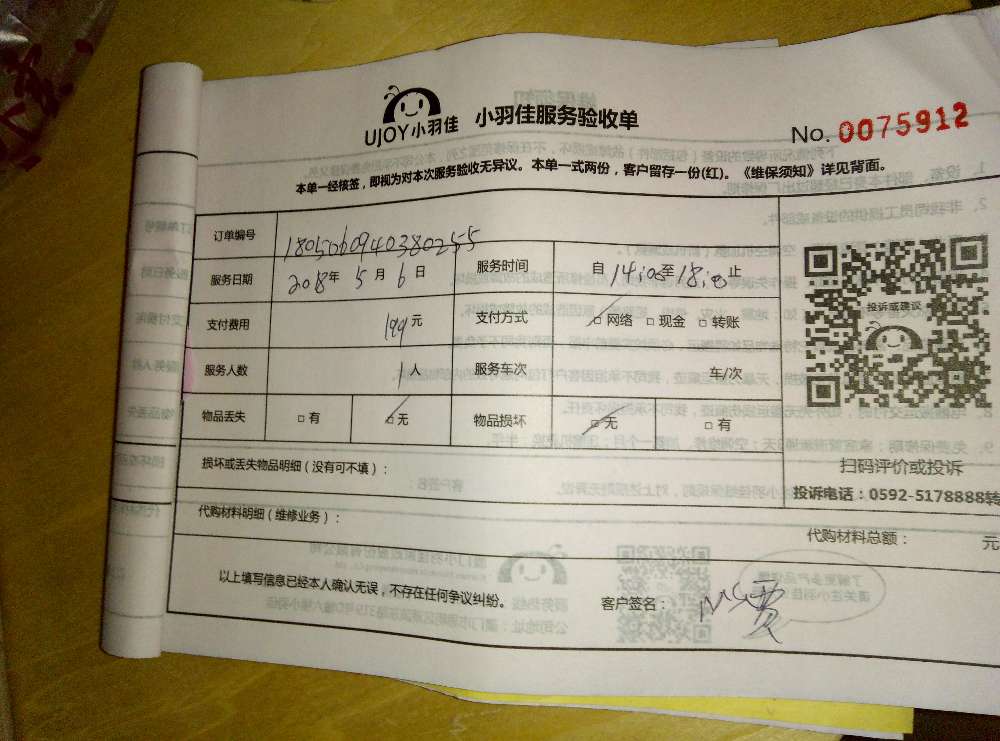 UJOY小羽佳 小羽佳服务验收单
No. 0075912
本单一经核签，即视为对本次服务验收无异议。本单一式两份，客户留存一份(红)。《维保须知》详见背面。
订单编号 1805060940380255
服务日期 2018年 5月 6日 服务时间 自 14:00至18:00止
支付费用 199元 支付方式 □网络 □现金 □转账
服务人数 1人 服务车次 车/次
物品丢失 □有 □无 物品损坏 □无 □有
投诉或建议
扫码评价或投诉
投诉电话：0592-5178888转
损坏或丢失物品明细（没有可不填）：
代购材料明细（维修业务）：
代购材料总额： 元
以上填写信息已经本人确认无误，不存在任何争议纠纷。 客户签名：